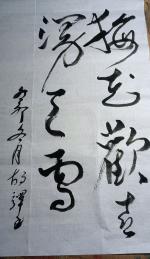 梅花歡喜
漫天雪
冬月